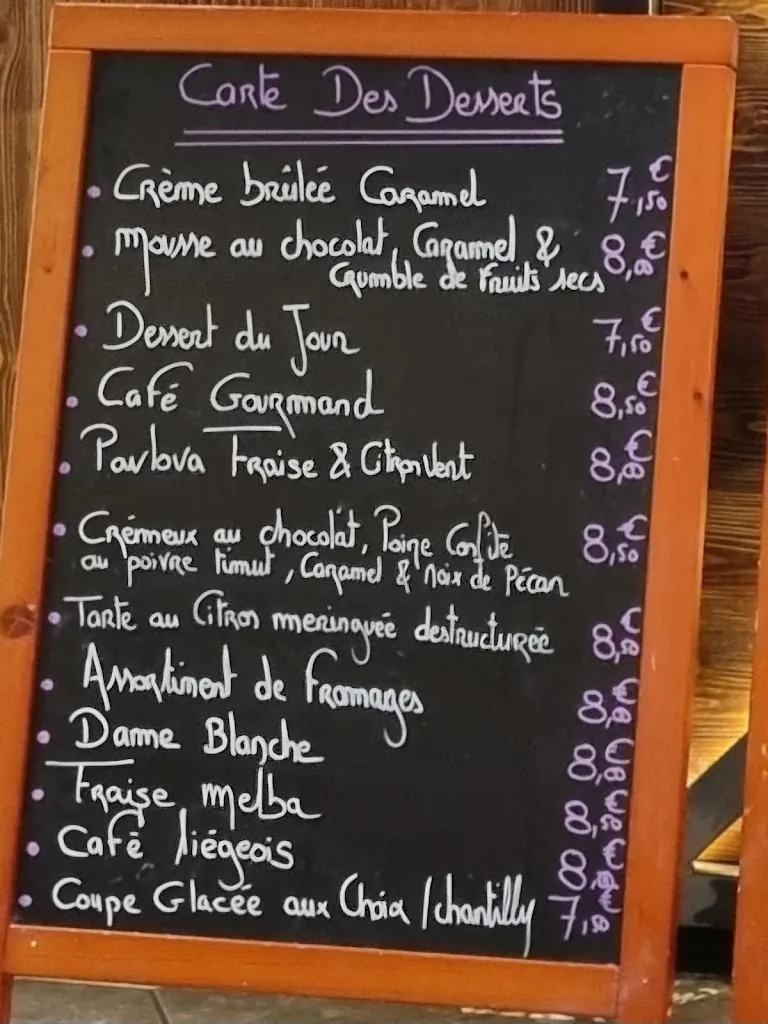 Carte Des Desserts
• Crème brûlée Caramel 7,50€
• Mousse au chocolat, Caramel & 8,00€
Crumble de Fruits secs
• Dessert du Jour 7,50€
• Café Gourmand 8,50€
• Pavlova Fraise & Citron Vert 8,00€
• Crémeux au chocolat, Poire Confite 8,50€
au poivre timut, Caramel & noix de Pécan
• Tarte au Citron meringuée destructurée 8,00€
• Assortiment de Fromages 8,00€
• Dame Blanche 8,00€
• Fraise Melba 8,50€
• Café liégeois
• Coupe Glacée aux Choix / chantilly 7,50€